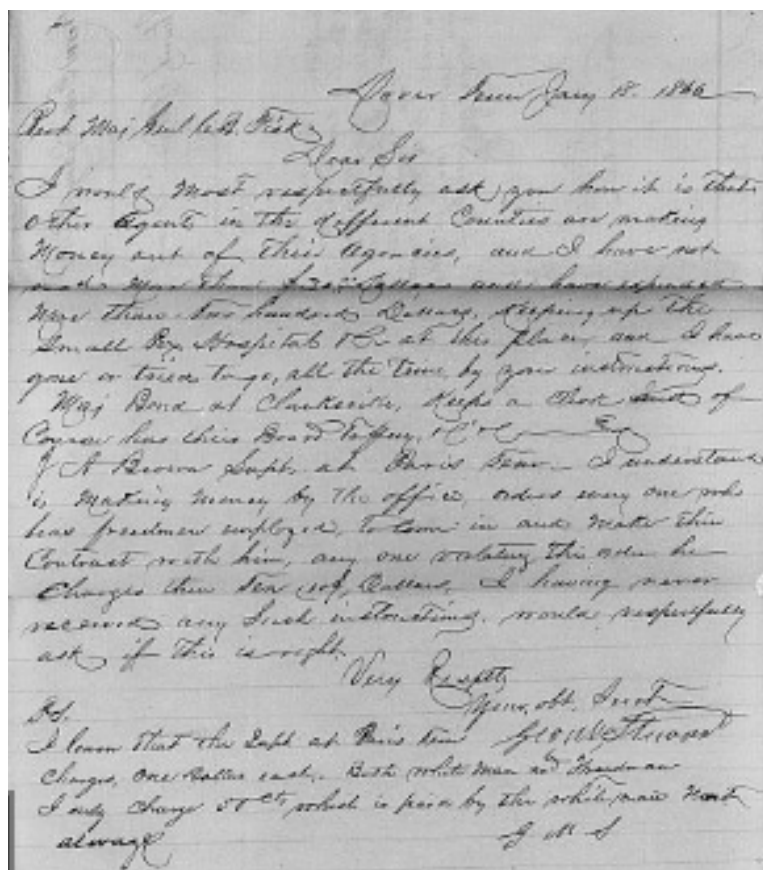 Dover Tenn Jany 18. 1866
Bvt Maj Genl C. B. Fisk
Dear Sir
I would most respectfully ask you how it is that
other Agents in the different Counties are making
Money out of their Agencies, and I have not
made More than Dollars and have expended
More than two hundred Dollars, Keeping up the
Small Pox Hospital &c. at this place, and I have
gone or tried to go, all the time, by your instructions.
Maj Bond at Clarksville, Keeps a
Course has their Board to pay, &c &c
J A Brown Supt. at Paris Tenn. I understand
is Making money by the office, orders every one who
has freedmen employed, to Come in and Make their
Contract with him, any one violating this order he
Charges them Ten Dollars, I having never
received any Such instructions, would respectfully
ask if this is right.
Very Respctly
Your obt. Servt
PS.
I learn that the Supt at Paris Tenn
Charges, One Dollar each, Both white Man and Freedman
I only Charge 50 cts, which is paid by the white man
always